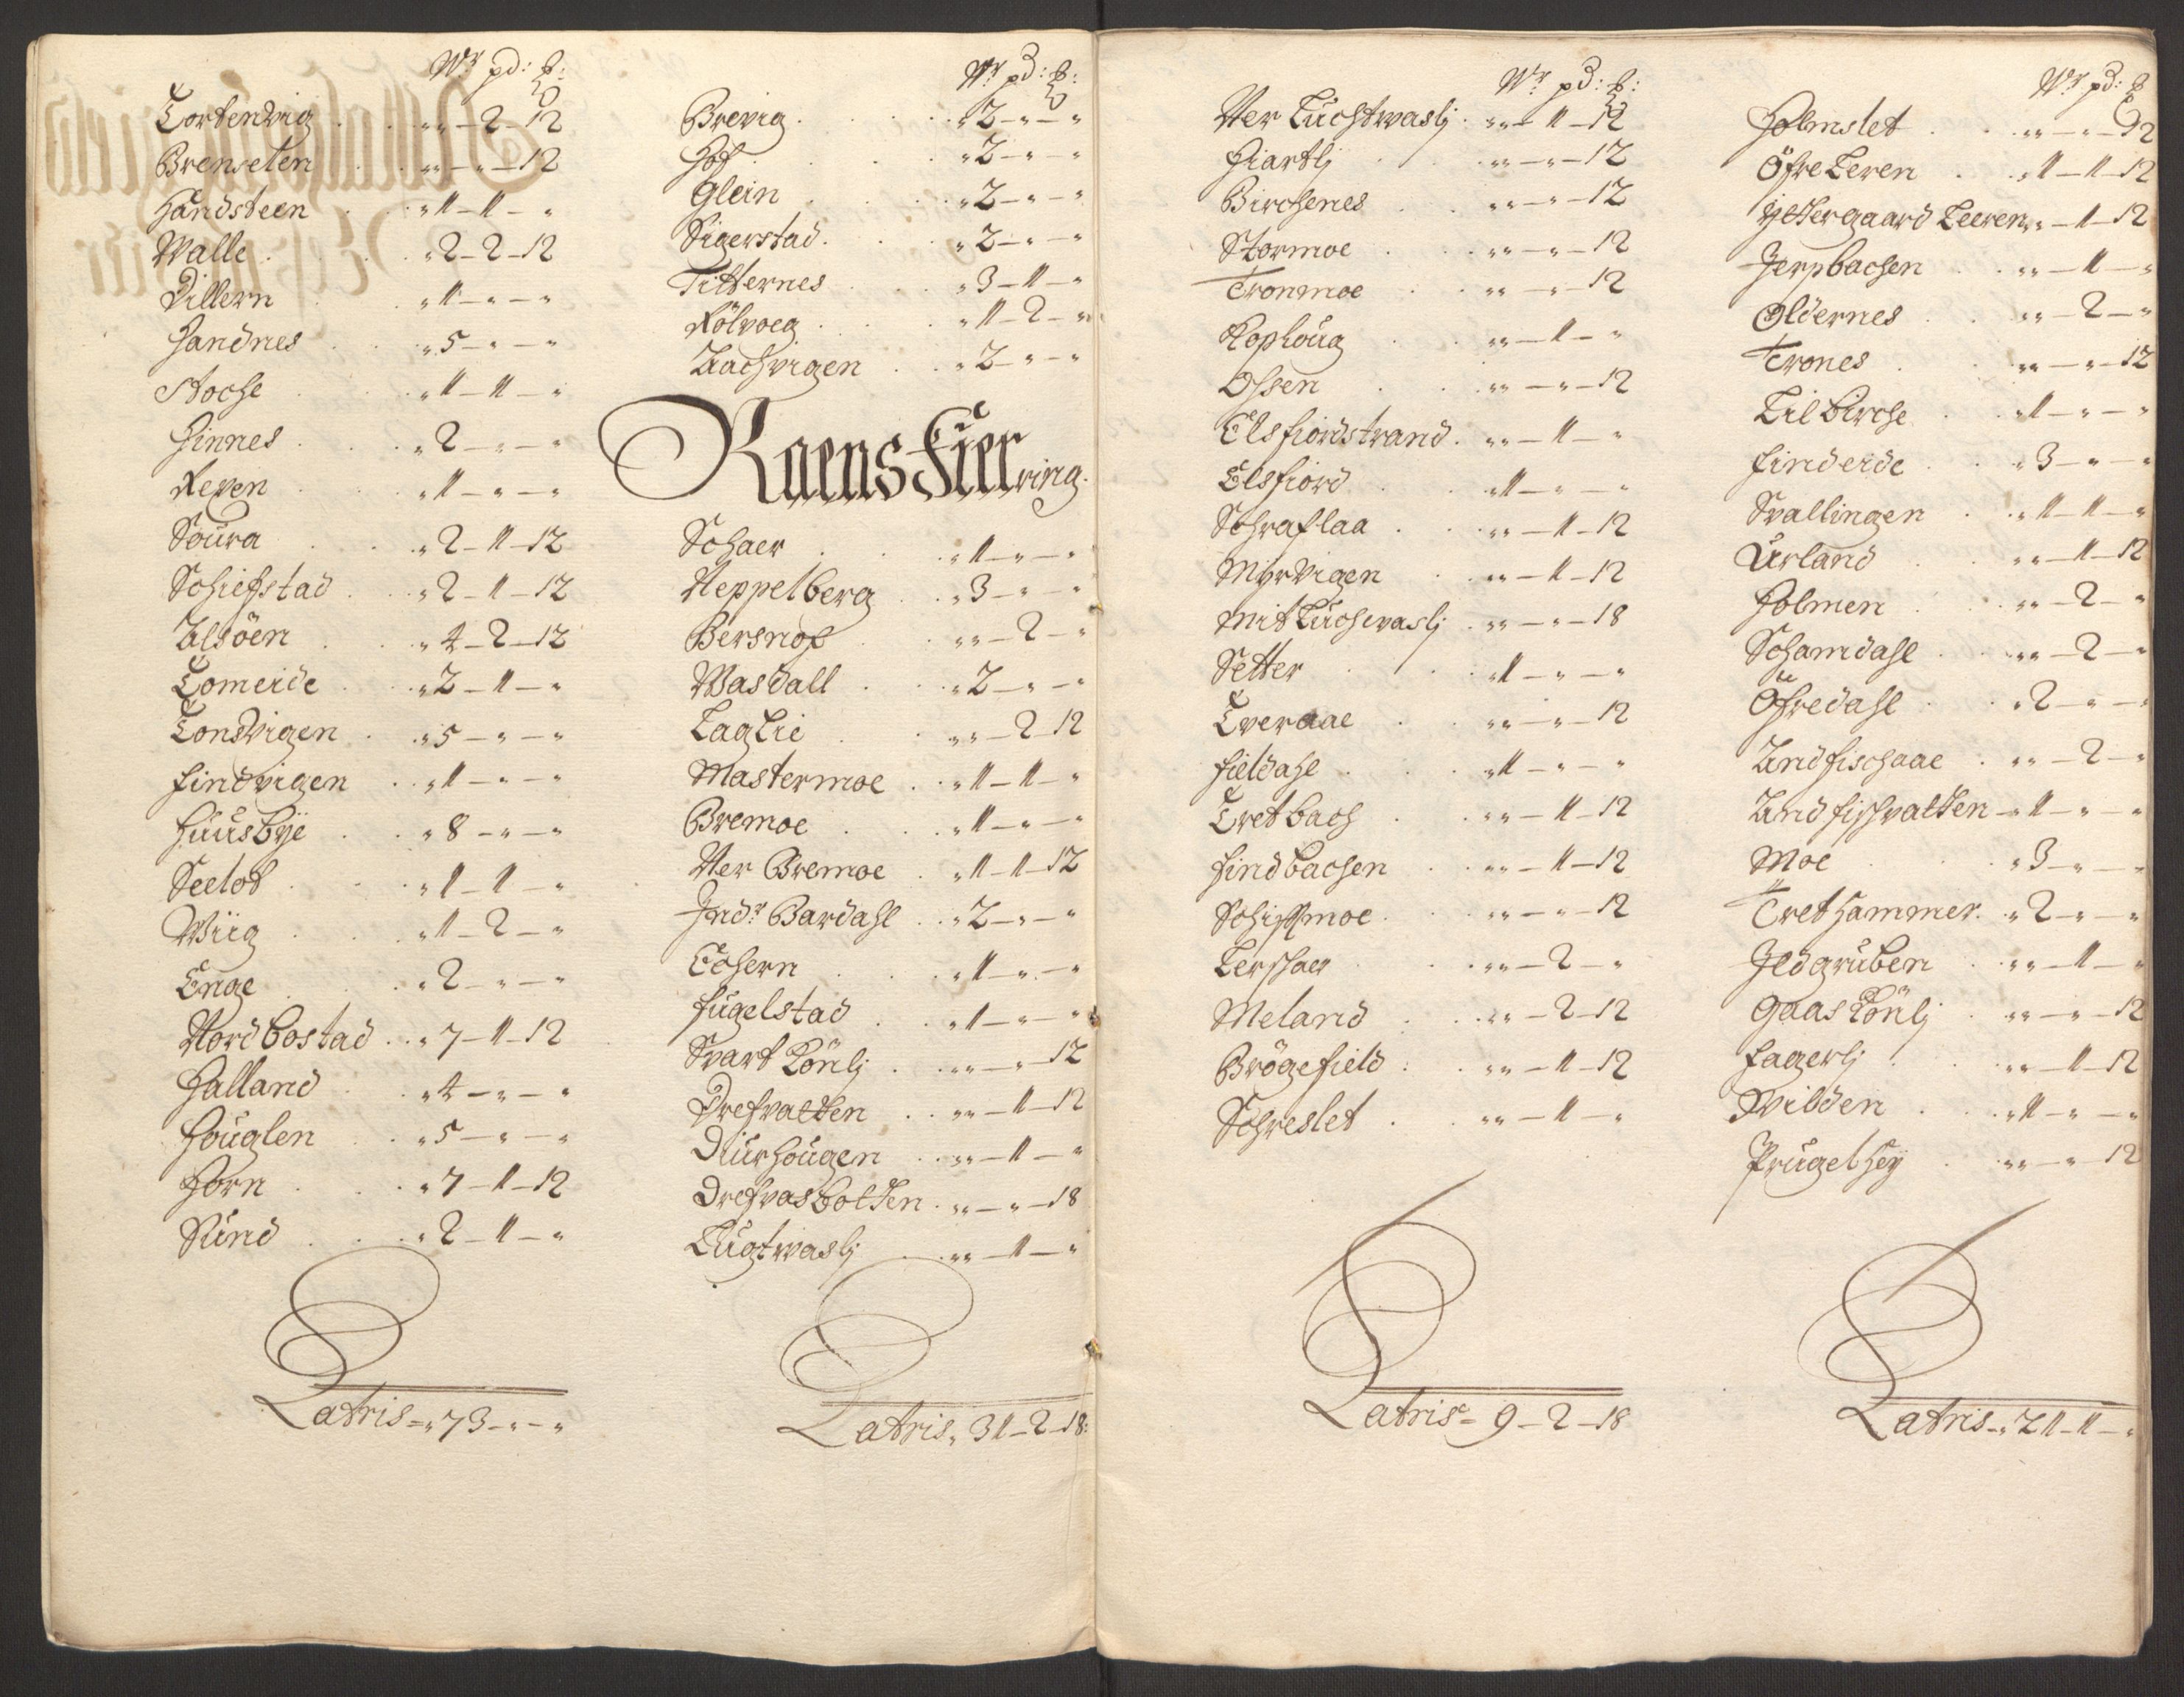 Wr pd: ß:
Tortendvig . . „„-2-12
Brenselen . „„-„-12
Handsteen . . „1-1-„
Walle . . . „2-2-12
Dillern . . „1-„-„
Handnes . . „5-„-„
Stoche . . „1-1-„
Hinnes . . „2-„-„
Reven . . „1-„-„
Soura . . „2-1-12
Schiefstad . . „2-1-12
Alsöen . . „4-2-12
Tomeide . . „2-1-„
Tondvigen . „5-„-„
Findvigen . . „1-„-„
Huusbye . . „8-„-„
Seelob . . „1-1-„
Wiig . . „1-2-„
Enge . . „2-„-„
Nordbostad . . „7-1-12
Halland . . „4-„-„
Houglen . . „5-„-„
Horn . . „7-1-12
Sund . . „2-1-„
Latris=„73-„-„
Wr pd: ß:
Brevig . . . „2-„-„
Hof . . . „2-„-„
Glein . . „2-„-„
Sigerstad . . „2-„-„
Titternes . . „3-1-„
Rölvoeg . . „1-2-„
Aachvigen . . „2-„-„
Raens Fierring.
Schaer . . „1-„-„
Neppelberg . . „3-„-„
Bersnof . „„-2-„
Wasdall . . „2-„-„
Laglie . . „„-2-12
Mastermoe . . „1-1-„
Bremoe . . „1-„-„
Ner Bremoe . „1-1-12
Indr Bardahl . . „2-„-„
Echern . . „1-„-„
Fugelstad . . „1-„-„
Svart Lönlj . . „„-„-12
Drefvatten . . „„-1-12
Diurhougen . . „„-1-„
Drefvasbotten . „„-„-18
Lugtvaslj . . „„-1-„
Latris„ 31-2-18:
Wr pd: ß:
Ner Luchtwaslj . „„-1-12
Hiartlj . . „„-„-12
Birchenes . „„-„-12
Stormoe . „„-„-12
Tronmoe . . „„-„-12
Rophoug . . „„-1-„
Ossen . . „„-„-12
Elsfiordstrand . „„-1-„
Elsfiord . . „1-„-„
Schraflaa . . „„-1-12
Myrvigen . „„-1-12
Mit Luchevaslj . „„-„-18
Setter . . „1-„-„
Tveraae . . „„-„-12
Fieldahl . . „1-„-„
Tretbach . . „„-1-12
Findbachen . „„-1-12
Schiffmoe . . „„-„-12
Lerschaer . . „„-2-„
Meland . . „„-2-12
Brögefield . . „„-1-12
Schreslet . „„-1-„
Latris= 9-2-18
Wr pd: ß
Holmslet . . „„-„-12
Öfre Leren . . „1-1-12
Yttergaard Leeren „„-1-12
Jerpbachen . . „„-1-„
Oldernes . . „„-2-„
Trones . „„-„-12
Lil Birche . „1-„-„
Finderde . . „3-„-„
Svallingen . . „1-1-„
Urland . . „„-1-12
Holmen . . „„-2-„
Schamdahl . . „„-2-„
Öfredahl . . „2-„-„
Andfischaae . „„-2-„
Andfischvatten - „1-„-„
Moe . . „3-„-„
Trethammer . „2-„-„
Ildgruben . „„-1-„
Gaas Lönlj . „„-„-12
Fagerlj . . „„-1-12
Qvilden . . „1-„-„
Prügelhey . „„-„-12
Latris-„21-1-„